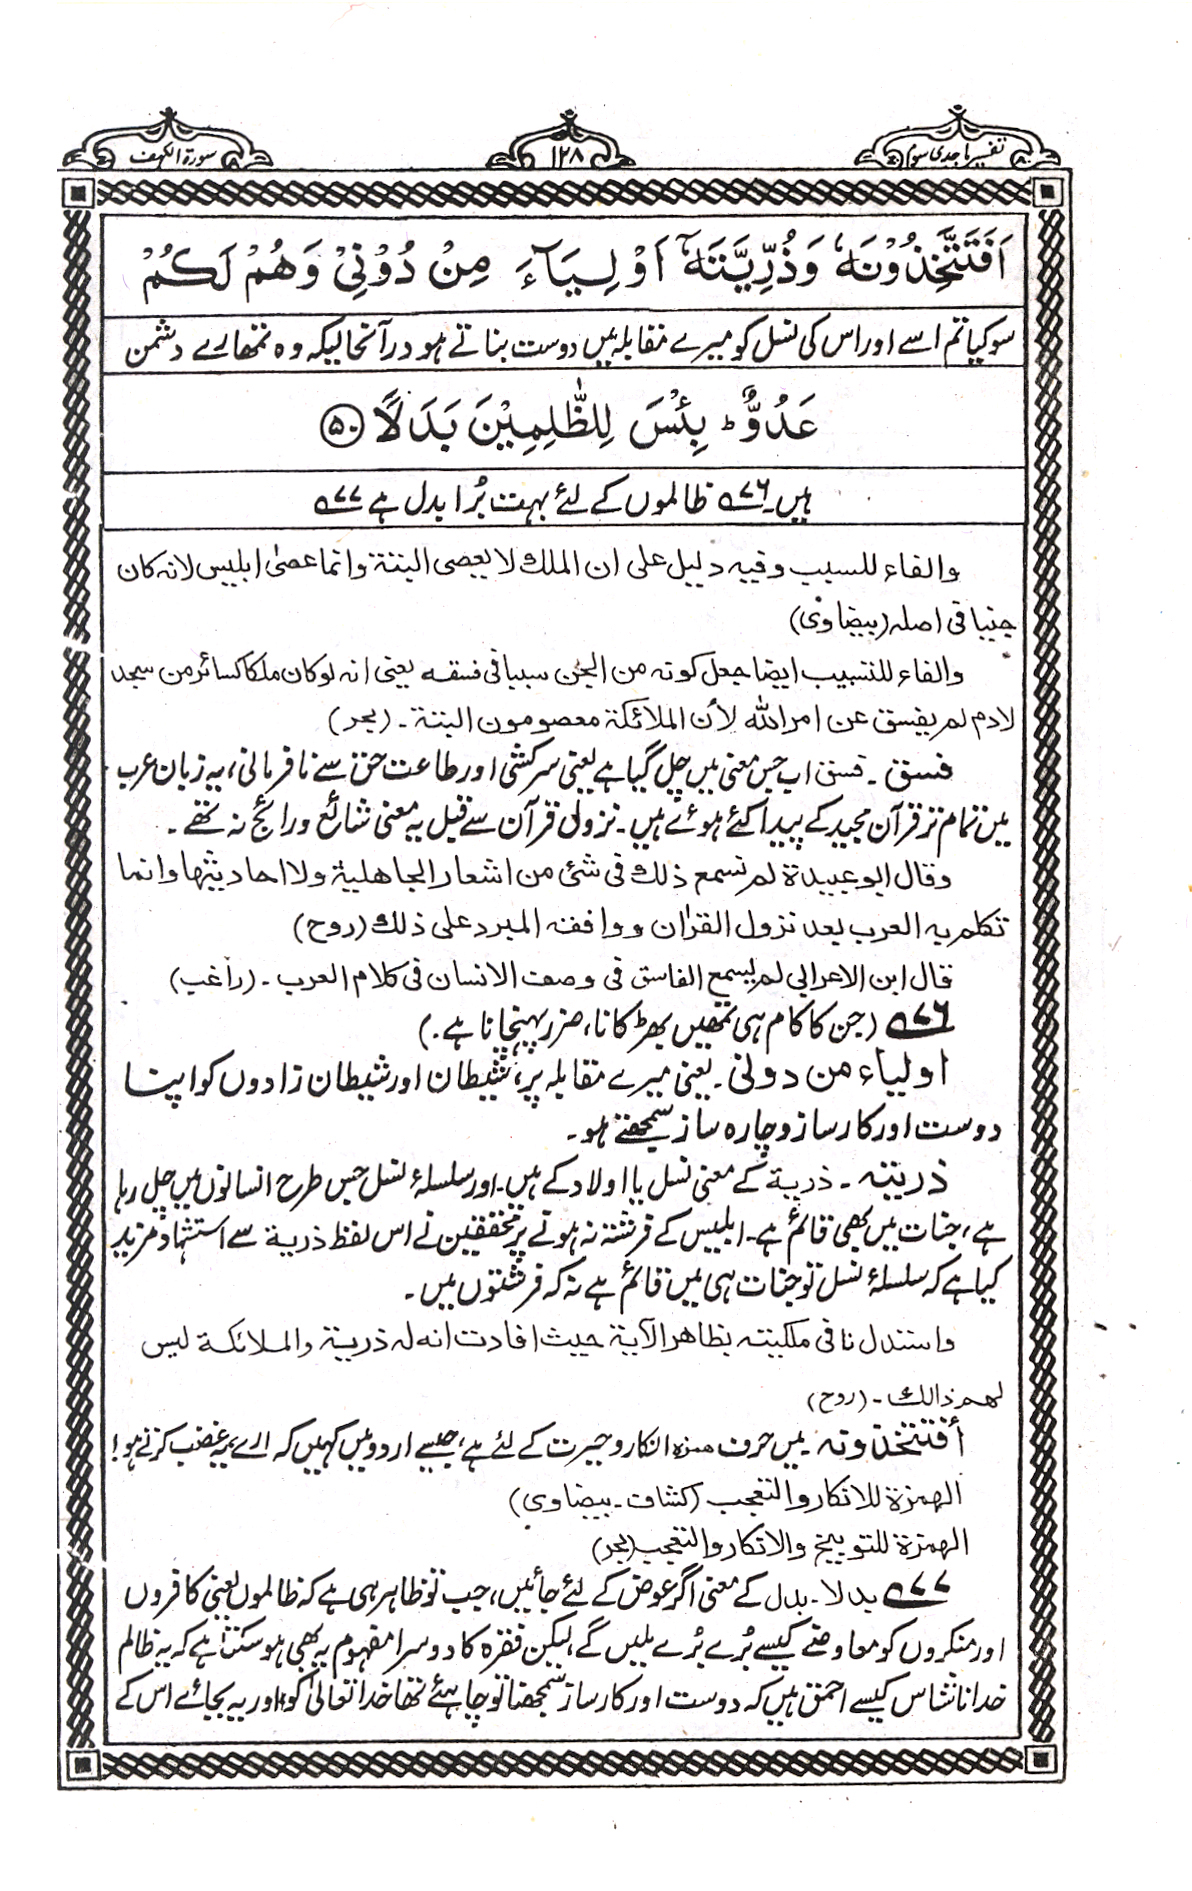 تفسیر ماجدی سوم
۱۲۸
سورة الکہف
اَفَتَتَّخِذُوْنَهٗ وَذُرِّيَّتَهٗۤ اَوْلِيَآءَ مِنْ دُوْنِيْ وَهُمْ لَكُمْ
سو کیا تم اسے اور اس کی نسل کو میرے مقابلہ میں دوست بناتے ہو درآنحالیکہ وہ تمھارے دشمن
عَدُوٌّ ؕ بِئْسَ لِلظّٰلِمِيْنَ بَدَلًا ۵۰
ہیں۔ ۷۶ ظالموں کے لئے بہت بُرا بدل ہے ۷۷
والفاء للسبب وفیه دلیل علی ان الملك لا یعصی البتة وانما عصیٰ ابلیس لانه کان
جنیا فی اصله (بیضاوی)
والفاء للتسبیب ایضا جعل کونه من الجن سببا فی فسقه یعنی انه لو کان ملکا کسائر من سجد
لادم لم یفسق عن امر الله لأن الملائکة معصومون البتة ۔ (بحر)
فسق ۔ فسق اب جس معنی میں چل گیا ہے یعنی سرکشی اور طاعت حق سے نافرمانی، یہ زبان عرب
میں تمام تر قرآن مجید کے پیدا کئے ہوئے ہیں۔ نزول قرآن سے قبل یہ معنی شائع و رائج نہ تھے ۔
وقال ابو عبیدة لم نسمع ذلك فی شئ من اشعار الجاهلیة ولا احادیثها وانما
تکلم به العرب بعد نزول القرآن ووافقه المبرد علی ذلك (روح)
قال ابن الاعرابی لم یسمع الفاسق فی وصف الانسان فی کلام العرب ۔ (راغب)
۷۶ (جن کا کام ہی تمھیں بھڑکانا، ضرر پہنچانا ہے ۔)
اولیاء من دونی ۔ یعنی میرے مقابلہ پر، شیطان اور شیطان زادوں کو اپنا
دوست اور کارساز و چارہ ساز سمجھتے ہو ۔
ذریته ۔ ذریة کے معنی نسل یا اولاد کے ہیں۔ اور سلسلۂ نسل جس طرح انسانوں میں چل رہا
ہے، جنات میں بھی قائم ہے۔ ابلیس کے فرشتہ نہ ہونے پر محققین نے اس لفظ ذریة سے استشہاد مزید
کیا ہے کہ سلسلۂ نسل تو جنات ہی میں قائم ہے نہ کہ فرشتوں میں ۔
واستدل نافی ملکیته بظاهر الآیة حیث افادت انه له ذریة والملائکة لیس
لهم ذالك ۔ (روح)
أفتتخذونه میں حرف ہمزہ انکار و حیرت کے لئے ہے، جیسے اردو میں کہیں کہ ارے یہ غضب کرتے ہو!
الهمزة للانکار والتعجب (کشاف ۔ بیضاوی)
الهمزة للتوبیخ والانکار والتعجب (بحر)
۷۷ بدلا ۔ بدل کے معنی اگر عوض کے لئے جائیں، جب تو ظاہر ہی ہے کہ ظالموں یعنی کافروں
اور منکروں کو معاوضے کیسے بُرے بُرے ملیں گے، لیکن فقرہ کا دوسرا مفہوم یہ بھی ہو سکتا ہے کہ یہ ظالم
خدا ناشناس کیسے احمق ہیں کہ دوست اور کارساز سمجھنا تو چاہئے تھا خدا تعالیٰ کو، اور یہ بجائے اس کے